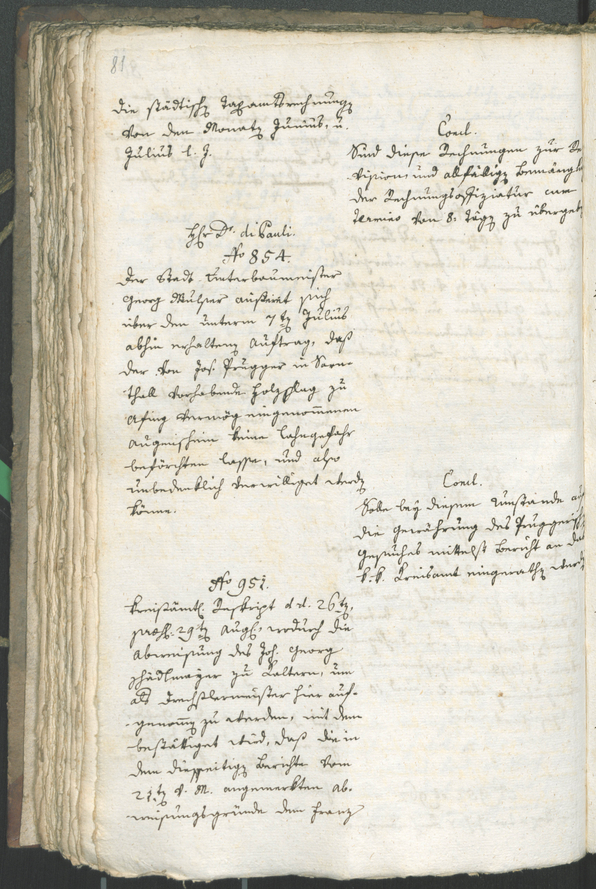 81.
die städtischen Taxamtsrechnungen
von den Monaten Junius, u.
Julius l. J.
Concl.
Sind diese Rechnungen zur Re
vision, und allfälligen Bemängl
der Rechnungsoffiziatur cum
termino von 8. Tägen zu übergeb
Hr Dr. di Pauli.
No 854.
Der Stadt Unterbaumeister
Georg Mulser äußeret sich
über den unterm 7ten Julius
abhin erhaltenen Auftrag, daß
der von Jos. Prugger in Sarn-
thall vorhabende Holzschlag zu
Afing vermög eingenommenen
Augenschein keine Lahngefahr
beförchten lasse, und also
unbedenklich verwilliget werden
könne.
Concl.
Solle bey diesem Umstande auf
die Gewährung des Pruggerisch
Gesuches mittelst Bericht an das
k. k. Kreisamt eingerathen werd
No 951.
Kreisämtl. Reskript dd. 26ten,
præs. 29ten Augs., wodurch die
Abweisung des Joh. Georg
zu Kaltern, um
als Drechslermeister hier auf-
genommen zu werden, mit dem
bestättiget wird, daß die in
dem diesseitigen Berichte vom
21ten v. M. angemerkten Ab-
weisungsgründe dem Franz